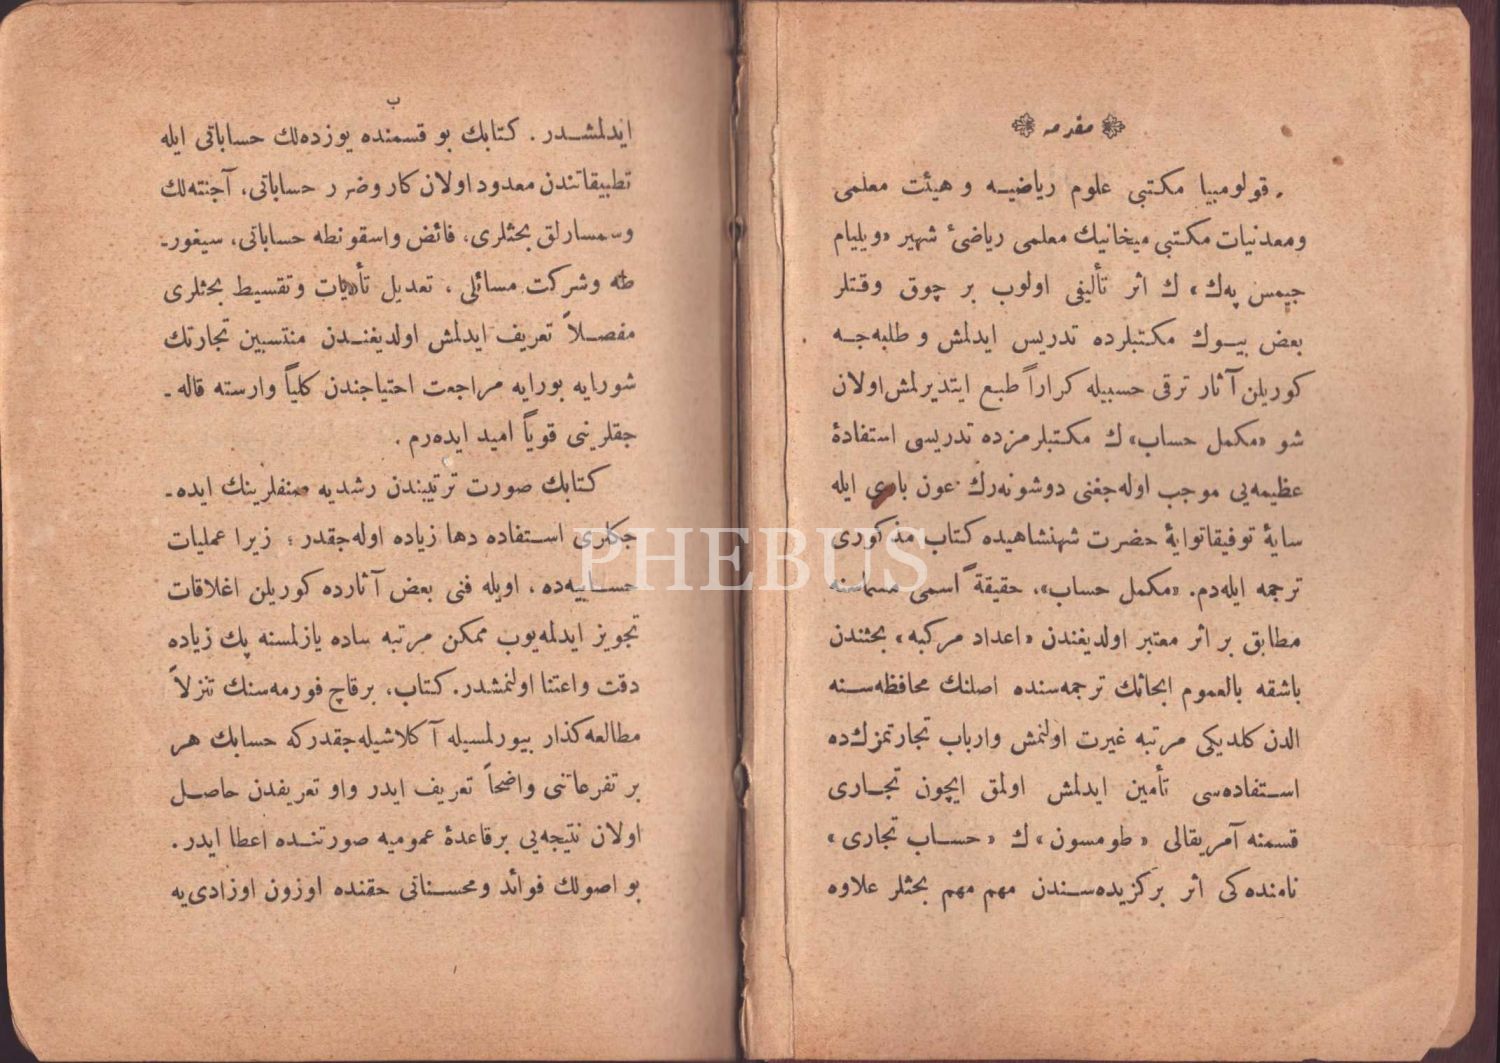 مقدمه
قولومبيا مكتبی علوم رياضيه و هيئت معلمی
ومعدنيات مكتبی ميخانيك معلمی رياضئ شهير «ويليام
جيمس پەك» ك اثر تأليفی اولوب بر چوق وقتلر
بعض بيوك مكتبلرده تدريس ايدلمش و طلبه‌جه
كوريلن آثار ترقی حسبيله كراراً طبع ايتديرلمش اولان
شو «مكمل حساب» ك مكتبلرمزده تدريسی استفادۀ
عظيمه‌یی موجب اوله‌جغنی دوشونه‌رك عون باری ايله
سايۀ توفيقاتوايۀ حضرت شهنشاهيده كتاب مذكوری
ترجمه ايله‌دم. «مكمل حساب»، حقيقةً اسمی مسماسنه
مطابق بر اثر معتبر اولديغندن «اعداد مركبه» بحثندن
باشقه بالعموم ابحاثك ترجمه‌سنده اصلنك محافظه‌سنه
الدن كلديكی مرتبه غيرت اولنمش وارباب تجارتمزك‌ده
استفاده‌سی تأمين ايدلمش اولمق ايچون تجاری
قسمنه آمريقالی «طومسون» ك «حساب تجاری»
نامنده‌كی اثر بركزيده‌سندن مهم مهم بحثلر علاوه
ب
ايدلمشدر. كتابك بو قسمنده يوزده‌لك حساباتی ايله
تطبيقاتندن معدود اولان كار وضرر حساباتی، آجنته‌لك
وسمسارلق بحثلری، فائض واسقونطه حساباتی، سيغور-
طه وشركت مسائلی، تعديل تأديات وتقسيط بحثلری
مفصلاً تعريف ايدلمش اولديغندن منتسبين تجارتك
شورايه بورايه مراجعت احتياجندن كلياً وارسته قاله-
جقلرينی قوياً اميد ايده‌رم.
كتابك صورت ترتيبندن رشديه صنفلرينك ايده-
جكلری استفاده دها زياده اوله‌جقدر؛ زيرا عمليات
حسابيه‌ده، اويله فنی بعض آثارده كوريلن اغلاقات
تجويز ايدلمه‌يوب ممكن مرتبه ساده يازلمسنه پك زياده
دقت واعتنا اولنمشدر. كتاب، برقاچ فورمه‌سنك تنزلاً
مطالعه‌كذار بيورلمسيله آكلاشيله‌جقدركه حسابك هر
بر تفرعاتنی واضحاً تعريف ايدر واو تعريفدن حاصل
اولان نتيجه‌یی برقاعدۀ عموميه صورتنده اعطا ايدر.
بو اصولك فوائد ومحسناتی حقنده اوزون اوزادی‌يه
PHEBUS